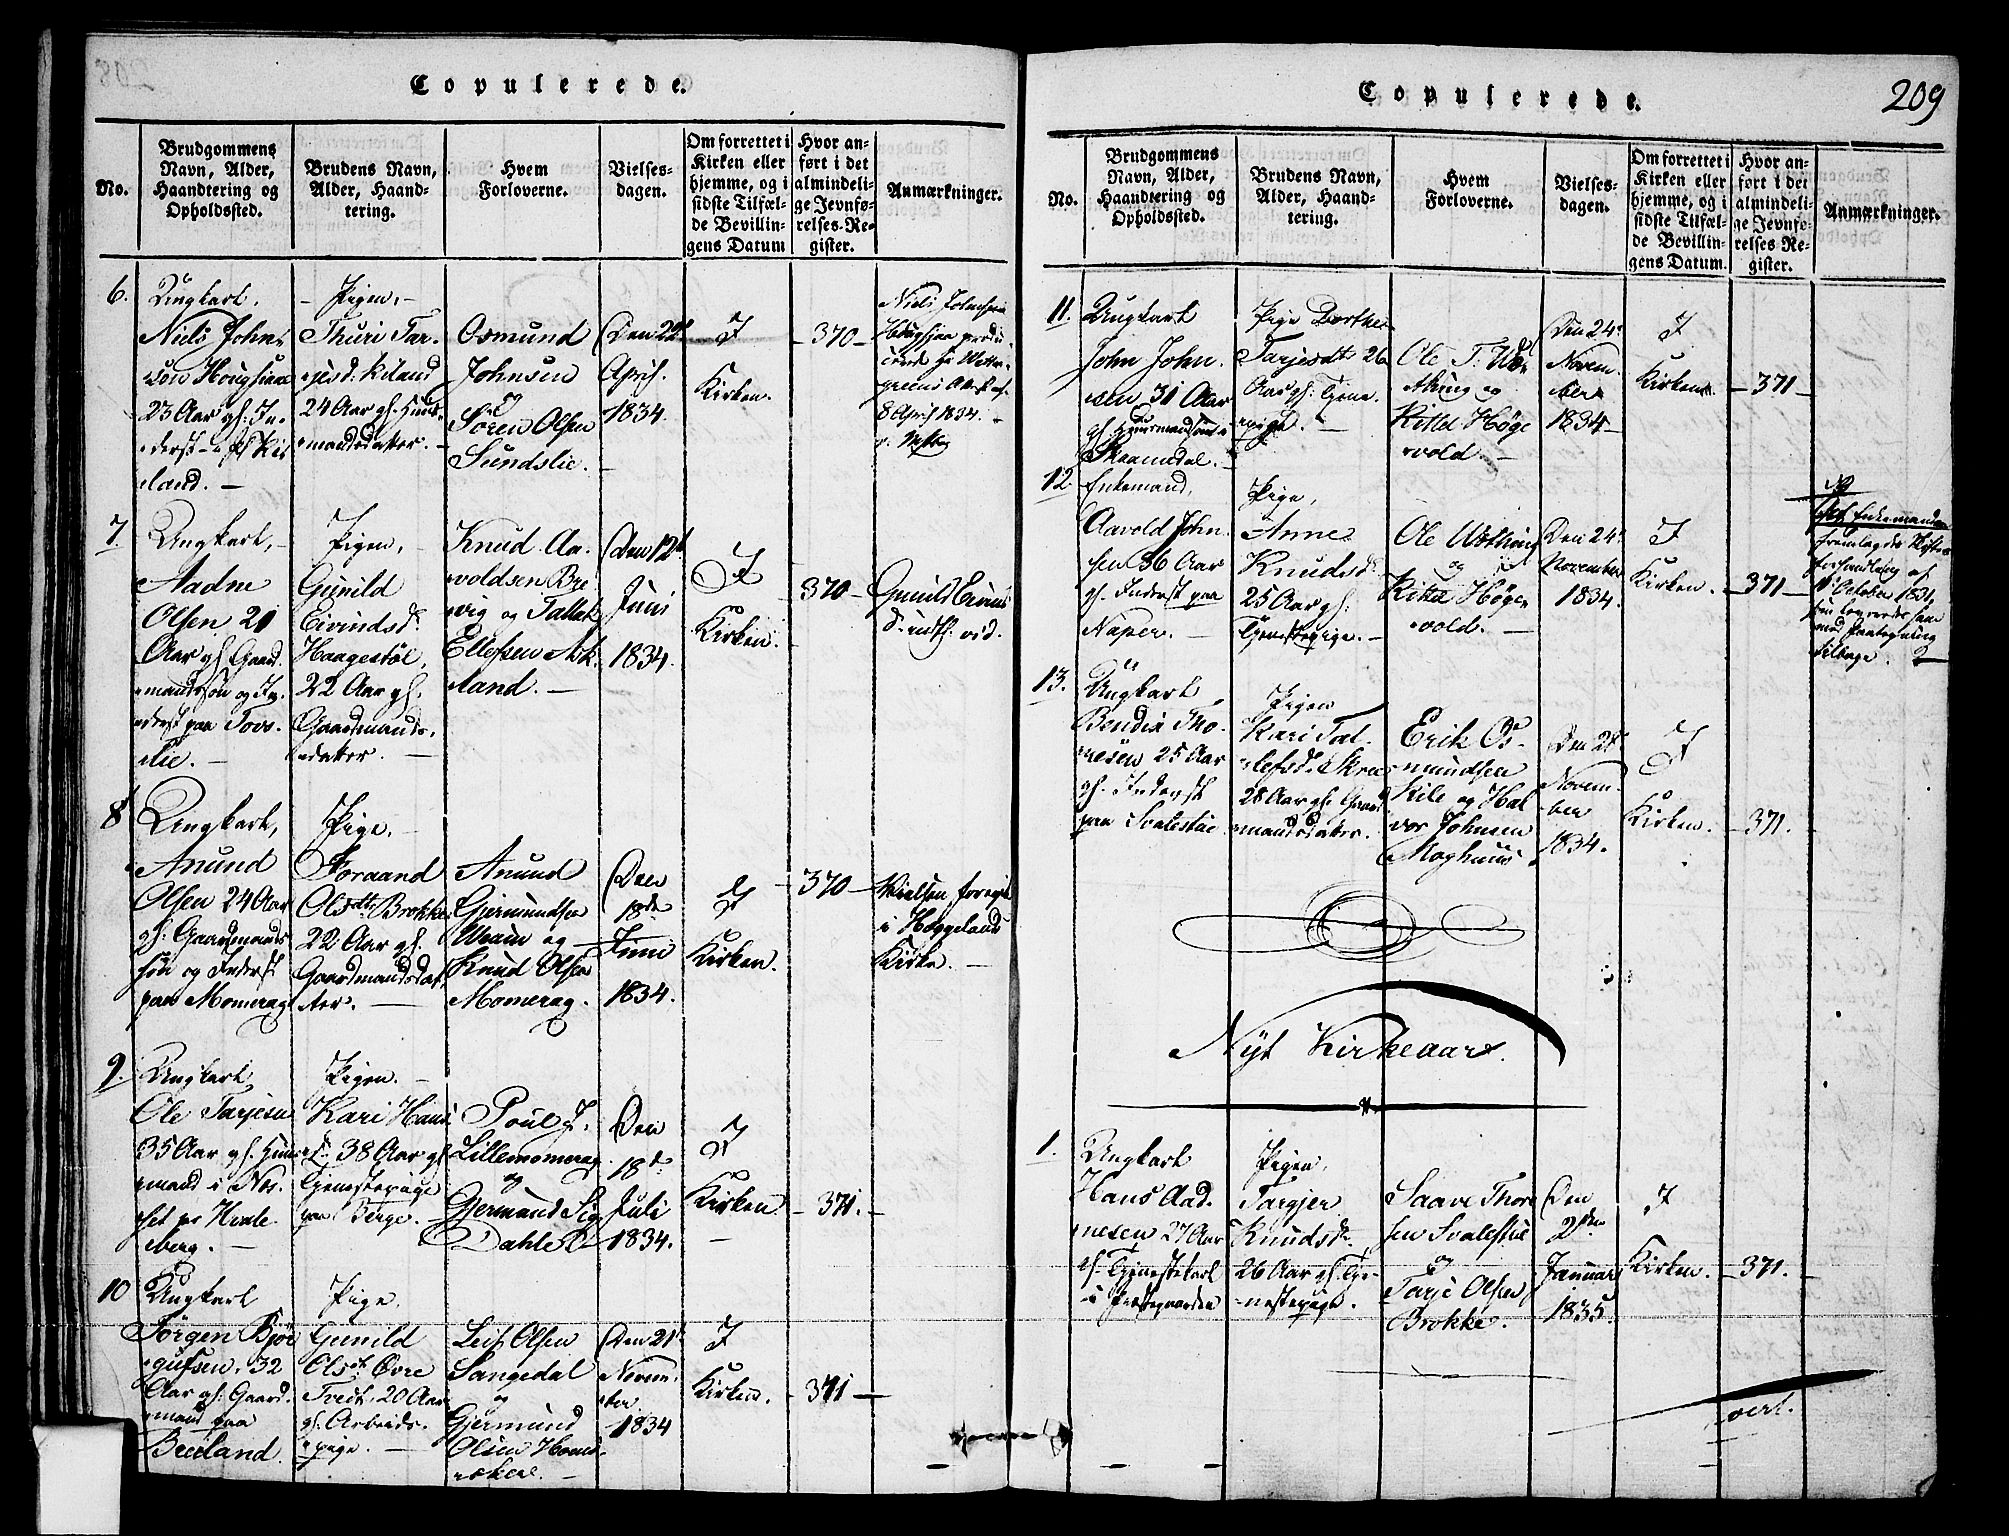 Copulerede.
No.
Brudgommens
Navn, Alder,
Haandtering og
Opholdssted.
Brudens Navn,
Alder, Haand-
tering.
Hvem
Forloverne.
Vielses-
dagen.
Om forrettet i
Kirken eller
hjemme, og i
sidste Tilfæl-
de Bevillin-
gens Datum
Hvor an-
ført i det
almindeli-
ge Jevnfø-
relses-Re-
gister.
Anmærkninger.
6.
Ungkarl,
Niels John-
son
23 Aar gl. In-
derst
land. —
— Pigen, —
Thuri Tar-
jesd: Kiland
24 Aar gl. Huus-
mandsdatter. —
Osmund
Johnsen
og
Søren Olsen
Sundslie. —
Den 22d
April
1834.
I
Kirken.
— 370 —
8 April 1834.
7.
Ungkarl, —
Aadne
Olsen 21
Aar gl. Gaard-
mandssøn og In-
derst paa Tovs-
lie. —
Pigen, —
Gunild
Eivindsd.
Haagestøl,
22 Aar gl.
Gaardmands-
datter. —
Knud Aa-
voldsen Bre
vig og Tallak
Ellefsen Ask-
land. —
Den 12t
Juni
1834.
I
Kirken.
370 —
8
Ungkarl,
Anund
Olsen 24 Aar
gl: Gaardmands
søn og Inderst
paa Momerag
Pige, —
Joraand
Olsdtr Brokke
22 Aar gl.
Gaardmandsdat-
ter. —
Anund
Gjermundsen
Urain og
Knud Olsen
Momerag.
Den
18de
Juni
1834.
I
Kirken.
— 370 —
Vielsen foregik
i Hæggeland
Kirke. —
9.
Ungkarl,
Ole Tarjesn
35 Aar gl. Huus-
mand i
berg. —
Pigen. —
Kari Hans
d. 38 Aar gl
Tjenestepige
paa Berge. —
Poul J.
Lillemomerag
og
Gjermund Sig
Dahle
Den
18d
Juli
1834.
I
Kirken
—
— 371. —
10
Ungkarl
Jørgen Bjør
gufsen, 32
Aar gl: Gaard-
mand paa
Breiland.
Pige,
Gunild
Olsdt Øvre
Treit, 20 Aar
gl. Arbeids-
pige. —
Leif Olsen
Sangedal
og
Gjermund
Olsen Homs-
Den 21t
Novem-
ber
1834
I
Kirken.
— 371 —
Copulerede.
209
No.
Brudgommens
Navn, Alder,
Haandtering og
Opholdssted.
Brudens Navn,
Alder, Haand-
tering.
Hvem
Forloverne.
Vielses-
dagen.
Om forrettet i
Kirken eller
hjemme, og i
sidste Tilfæl-
de Bevillin-
gens Datum.
Hvor an-
ført i det
almindeli-
ge Jevnfø-
relses Re-
gister.
Anmærkninger.
11.
Ungkarl
John John-
sen 31 Aar
gl Huusmandssøn i
Skaamedal. —
Pige Borthe
Tarjesdt 26
Aar gl: Tjene-
pige. —
Ole T:
og
Kittel Høge
vold. —
Den 24
Novem-
ber
1834 —
I
Kirken
— 371 —
12.
Enkemand,
Aavold John-
sen 36 Aar
gl. Inderst paa
Naper. —
Pige,
Anne
Knudsd.
25 Aar gl:
Tjenestepige. —
Ole
og
Kittel Høge-
vold. —
Den 24
November
1834.
I
Kirken.
— 371 —
October 1831,
tilbage.
13.
Ungkarl
Bendix Tho-
resen 25 Aar
gl. Inderst
paa Svalestøe
Pigen
Kari Tal-
lefsd. Skree
28 Aar gl: Gaard
mandsdatter.
Erik Os-
mundsen
Kile og Hal
vor Johnsen
Moghuus
Den 28
Novem-
ber
1834.
I
Kirken.
— 371.
Nyt Kirkeaar.
1.
Ungkarl
Hans Aad-
nesen 27 Aar
gl. Tjenestekarl
i Præstegaarden
Pigen,
Targjer
Knudsd.
26 Aar gl. Tje-
nestepige.
Saave Thore
sen Svalestøe
og
Tarje Olsen
Brokke.
Den
2den
Januar
1835.
I
Kirken.
— 371. —
vert.